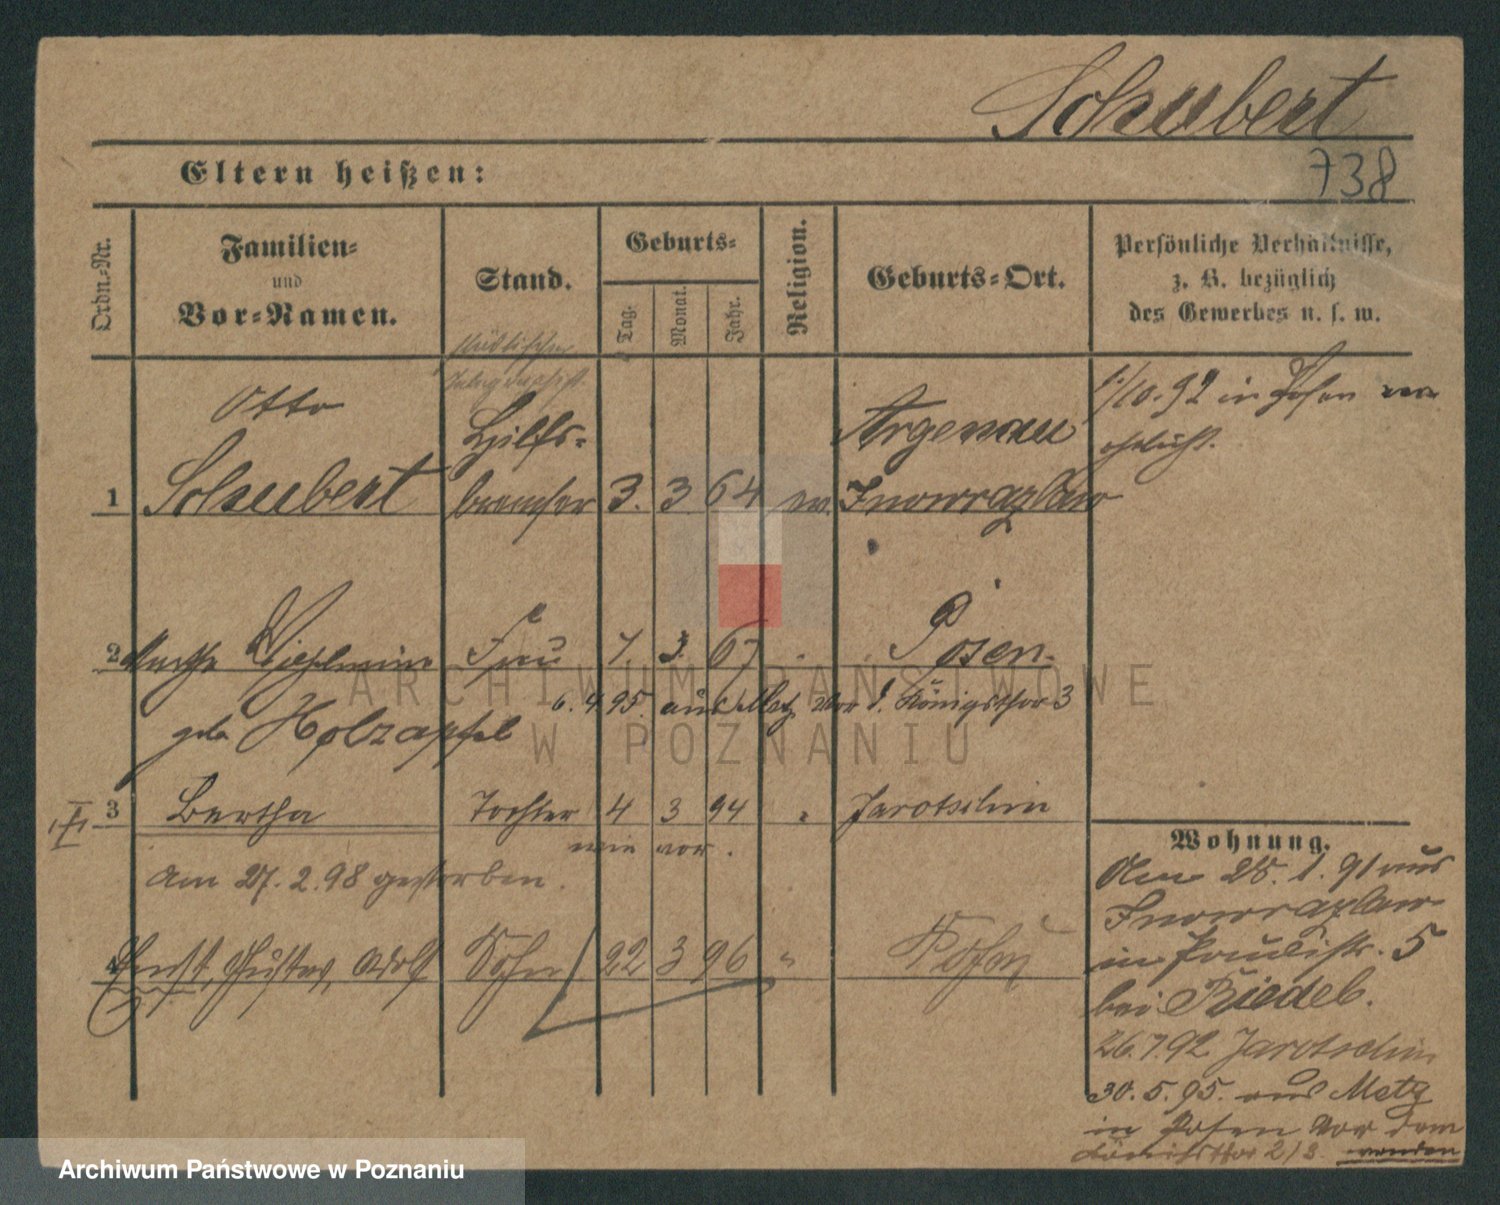 Schubert
738
Eltern heißen:
Ordn.-Nr.
Familien-
und
Vor-Namen.
Stand.
Geburts-
Tag.
Monat.
Jahr.
Religion.
Geburts-Ort.
Persönliche Verhältnisse,
z. B. bezüglich
des Gewerbes u. s. w.
Otto
Hilfs-
Argenau
1/10.92 in Posen ver
ehelicht.
1 Schubert bremser 3. 3. 64 ev. Inowrazlaw
2 Martha Wilhelmine Frau 7. 3. 67 Posen.
6.4.95. aus Metz vor d. Königsthor 3
geb. Holzapfel
3 Bertha Tochter 4 3 94 " Jarotschin
wie vor.
am 27.2.98 gestorben.
4 Ernst, Gustav, Adolf Sohn 22 3 96 " Posen
Wohnung.
Am 28.1.91 aus
Inowrazlaw
in Paulistr. 5
bei Riedel.
26.7.92 Jarotschin
30.5.95. aus Metz
in Posen vor dem
Königsthor 2/3. wenden
ARCHIWUM PAŃSTWOWE
W POZNANIU
Archiwum Państwowe w Poznaniu